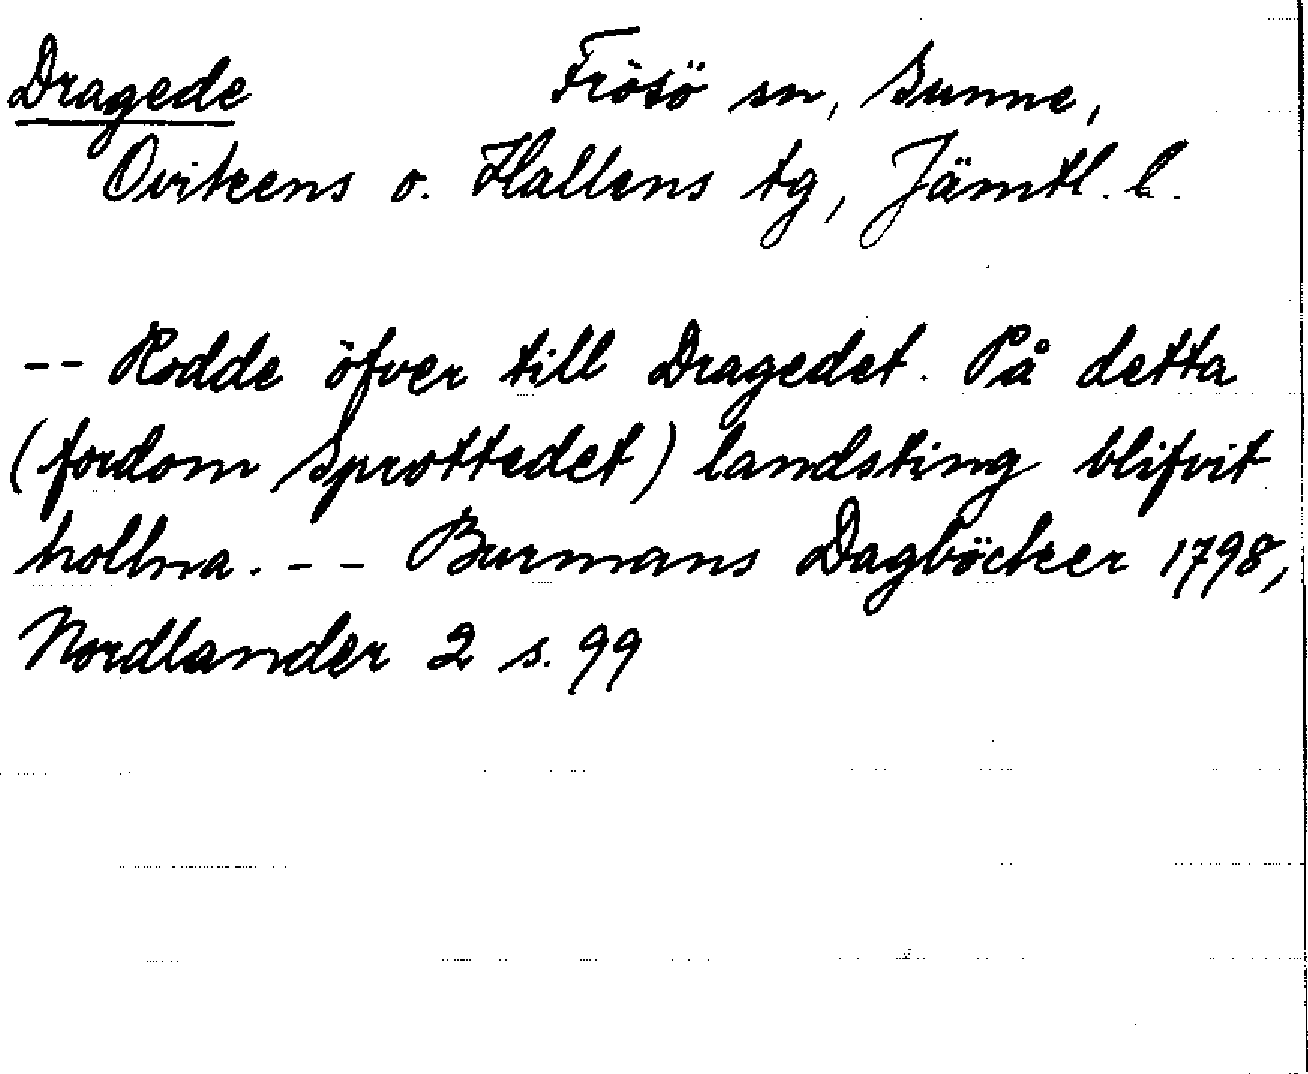 Dragede Frösö sn, Sunne,
Ovikens o. Hallens tg, Jämtl. l.
-- Rodde öfver till Dragedet. På detta
(fordom Sprottedet) landsting blifvit
hollna. -- Burmans Dagböcker 1798,
Nordlander 2 s. 99